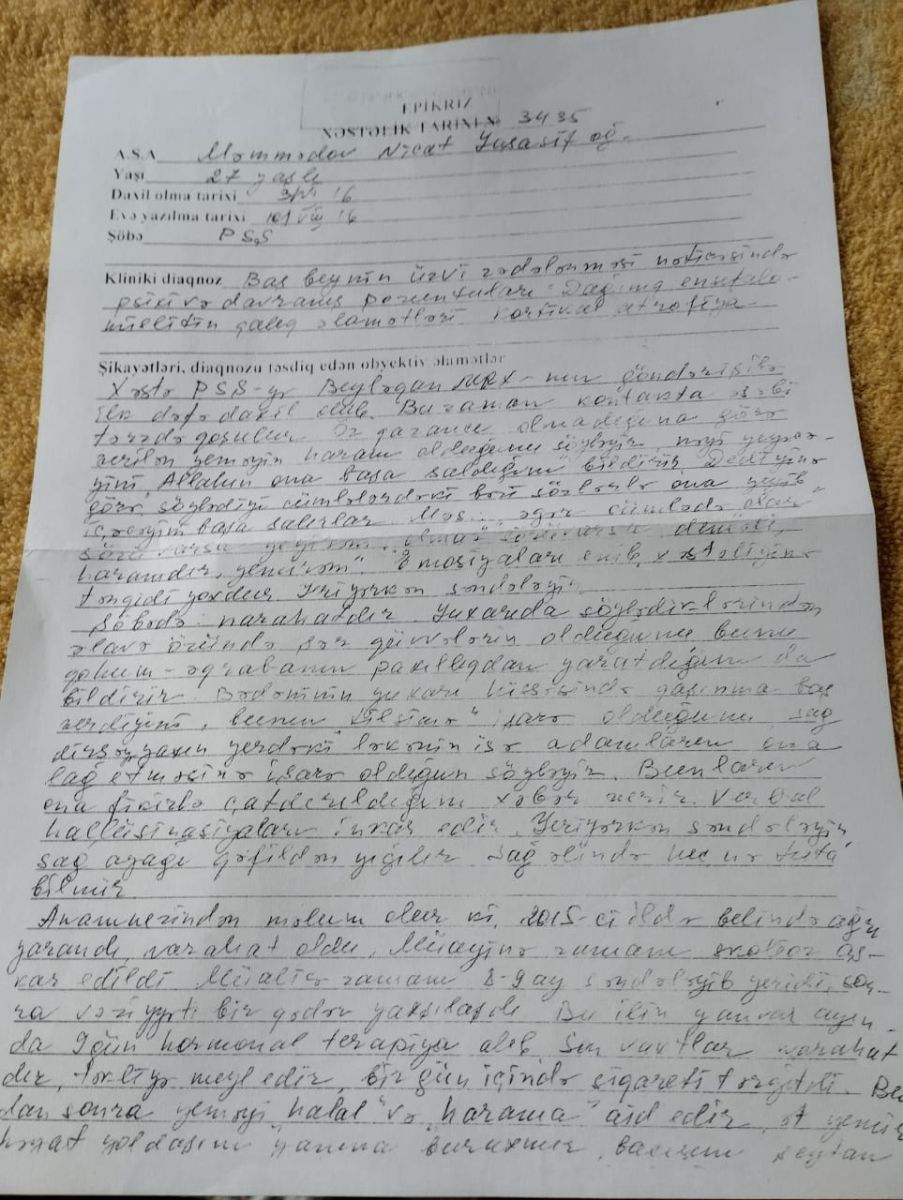 EPİKRİZ
XƏSTƏLİK TARİXİ № 3435
A.S.A Məmmədov Nicat Yusasif oğ.
Yaşı 27 yaşlı
Daxil olma tarixi 16
Evə yazılma tarixi 16
Şöbə PSŞ
Kliniki diaqnoz Baş beynin üzvi zədələnməsi nəticəsində
psixi və davranış pozuntuları. Dağınıq ensefalo-
mielitin qalıq əlamətləri. Kortikal atrofiya
Şikayətləri, diaqnozu təsdiq edən obyektiv əlamətlər
Xəstə PSŞ-yə Beyləqan MRX-nın göndərişilə
ilk dəfə daxil olub. Bu zaman kontakta əsəbi
tərzdə qoşulur. Öz qazancı olmadığına görə
verilən yeməyin haram olduğunu söyləyir, nəyi
Allahın ona başa saldığını bildirir. Dediyinə
görə, söylədiyi cümlələrdəki bəzi sözlərlə ona yeyib
içəcəyini başa salırlar. Məs. əgər cümlədə "olar"
sözü varsa yeyirəm, "olmaz" sözü varsa deməli,
haramdır, yemirəm". Emosiyaları enib, xəstəliyinə
tənqidi yoxdur. Yeriyərkən səndələyir.
Şöbədə narahatdır. Yuxarıda söylədiklərindən
əlavə özündə şər qüvvələrin olduğunu bunu
qohum-əqrəbanın paxıllıqdan yaratdığını da
bildirir. Bədəninin yuxarı hissəsində qaşınma baş
verdiyini, bunun "tilsimə" işarə olduğunu, sağ
dirsəyə yaxın yerdəki ləkənin isə adamların ona
lağ etməsinə işarə olduğun söyləyir. Bunların
ona fikirlə çatdırıldığını xəbər verir. Verbal
hallüsinasiyaları inkar edir. Yeriyərkən səndələyir,
sağ ayağı qəfildən yığılır. Sağ əlində heç nə tuta
bilmir.
Anamnezindən məlum olur ki, 2015-ci ildə belində ağrı
yarandı, narahat oldu. Müayinə zamanı skolioz aş-
kar edildi. Müalicə zamanı 8-9 ay səndələyib yeridi, son-
ra vəziyyəti bir qədər yaxşılaşdı. Bu ilin yanvar ayın-
da 9 gün hormonal terapiya alıb. Son vaxtlar narahat
dır, təkliyə meyl edir, bir gün içində siqareti tərgitdi. Bun
dan sonra yeməyi "halal" və "harama" aid edir, ət yemir
həyat yoldaşını yanına buraxmır, bacısını şeytan